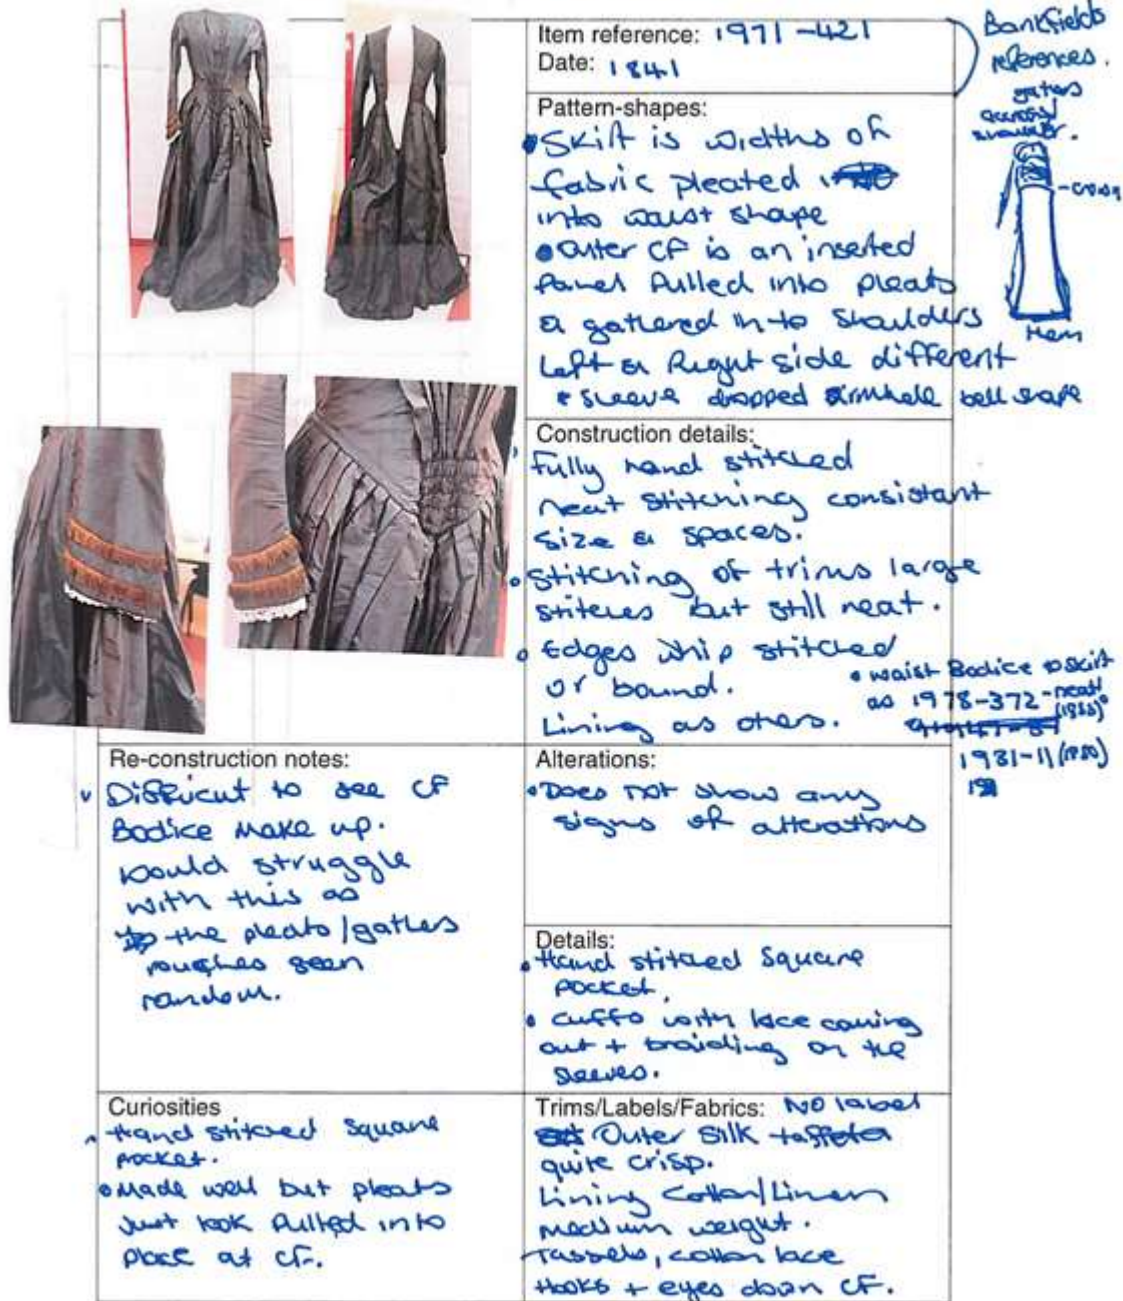 Item reference: 1971-421
Date: 1841
Bankfields
references.
gathers
across
shoulder.
Hem
Pattern-shapes:
• Skirt is widths of
fabric pleated
into waist shape
• Outer CF is an inserted
panel pulled into pleats
& gathered in to shoulders
Left & Right side different
• Sleeve dropped armhole bell shape
Construction details:
Fully hand stitched
neat stitching consistant
size & spaces.
• Stitching of trims large
stitches but still neat.
• Edges whip stitched
or bound.
Lining as others.
• waist Bodice to skirt
as 1978-372 - neat
1981-11
Re-construction notes:
Difficut to see CF
Bodice make up.
Would struggle
with this as
the pleats/gathers
rouches seen
random.
Alterations:
• Does not show any
signs of alterations
Details:
• Hand stitched Square
pocket.
• Cuffs with lace coming
out + braiding on the
sleeves.
Curiosities
Hand stitched Square
pocket.
• Made well but pleats
Just look pulled into
place at CF.
Trims/Labels/Fabrics: No label
Outer Silk taffeta
quite crisp.
Lining Cotton/Linen
medium weight.
Tassels, cotton lace
Hooks + eyes down CF.